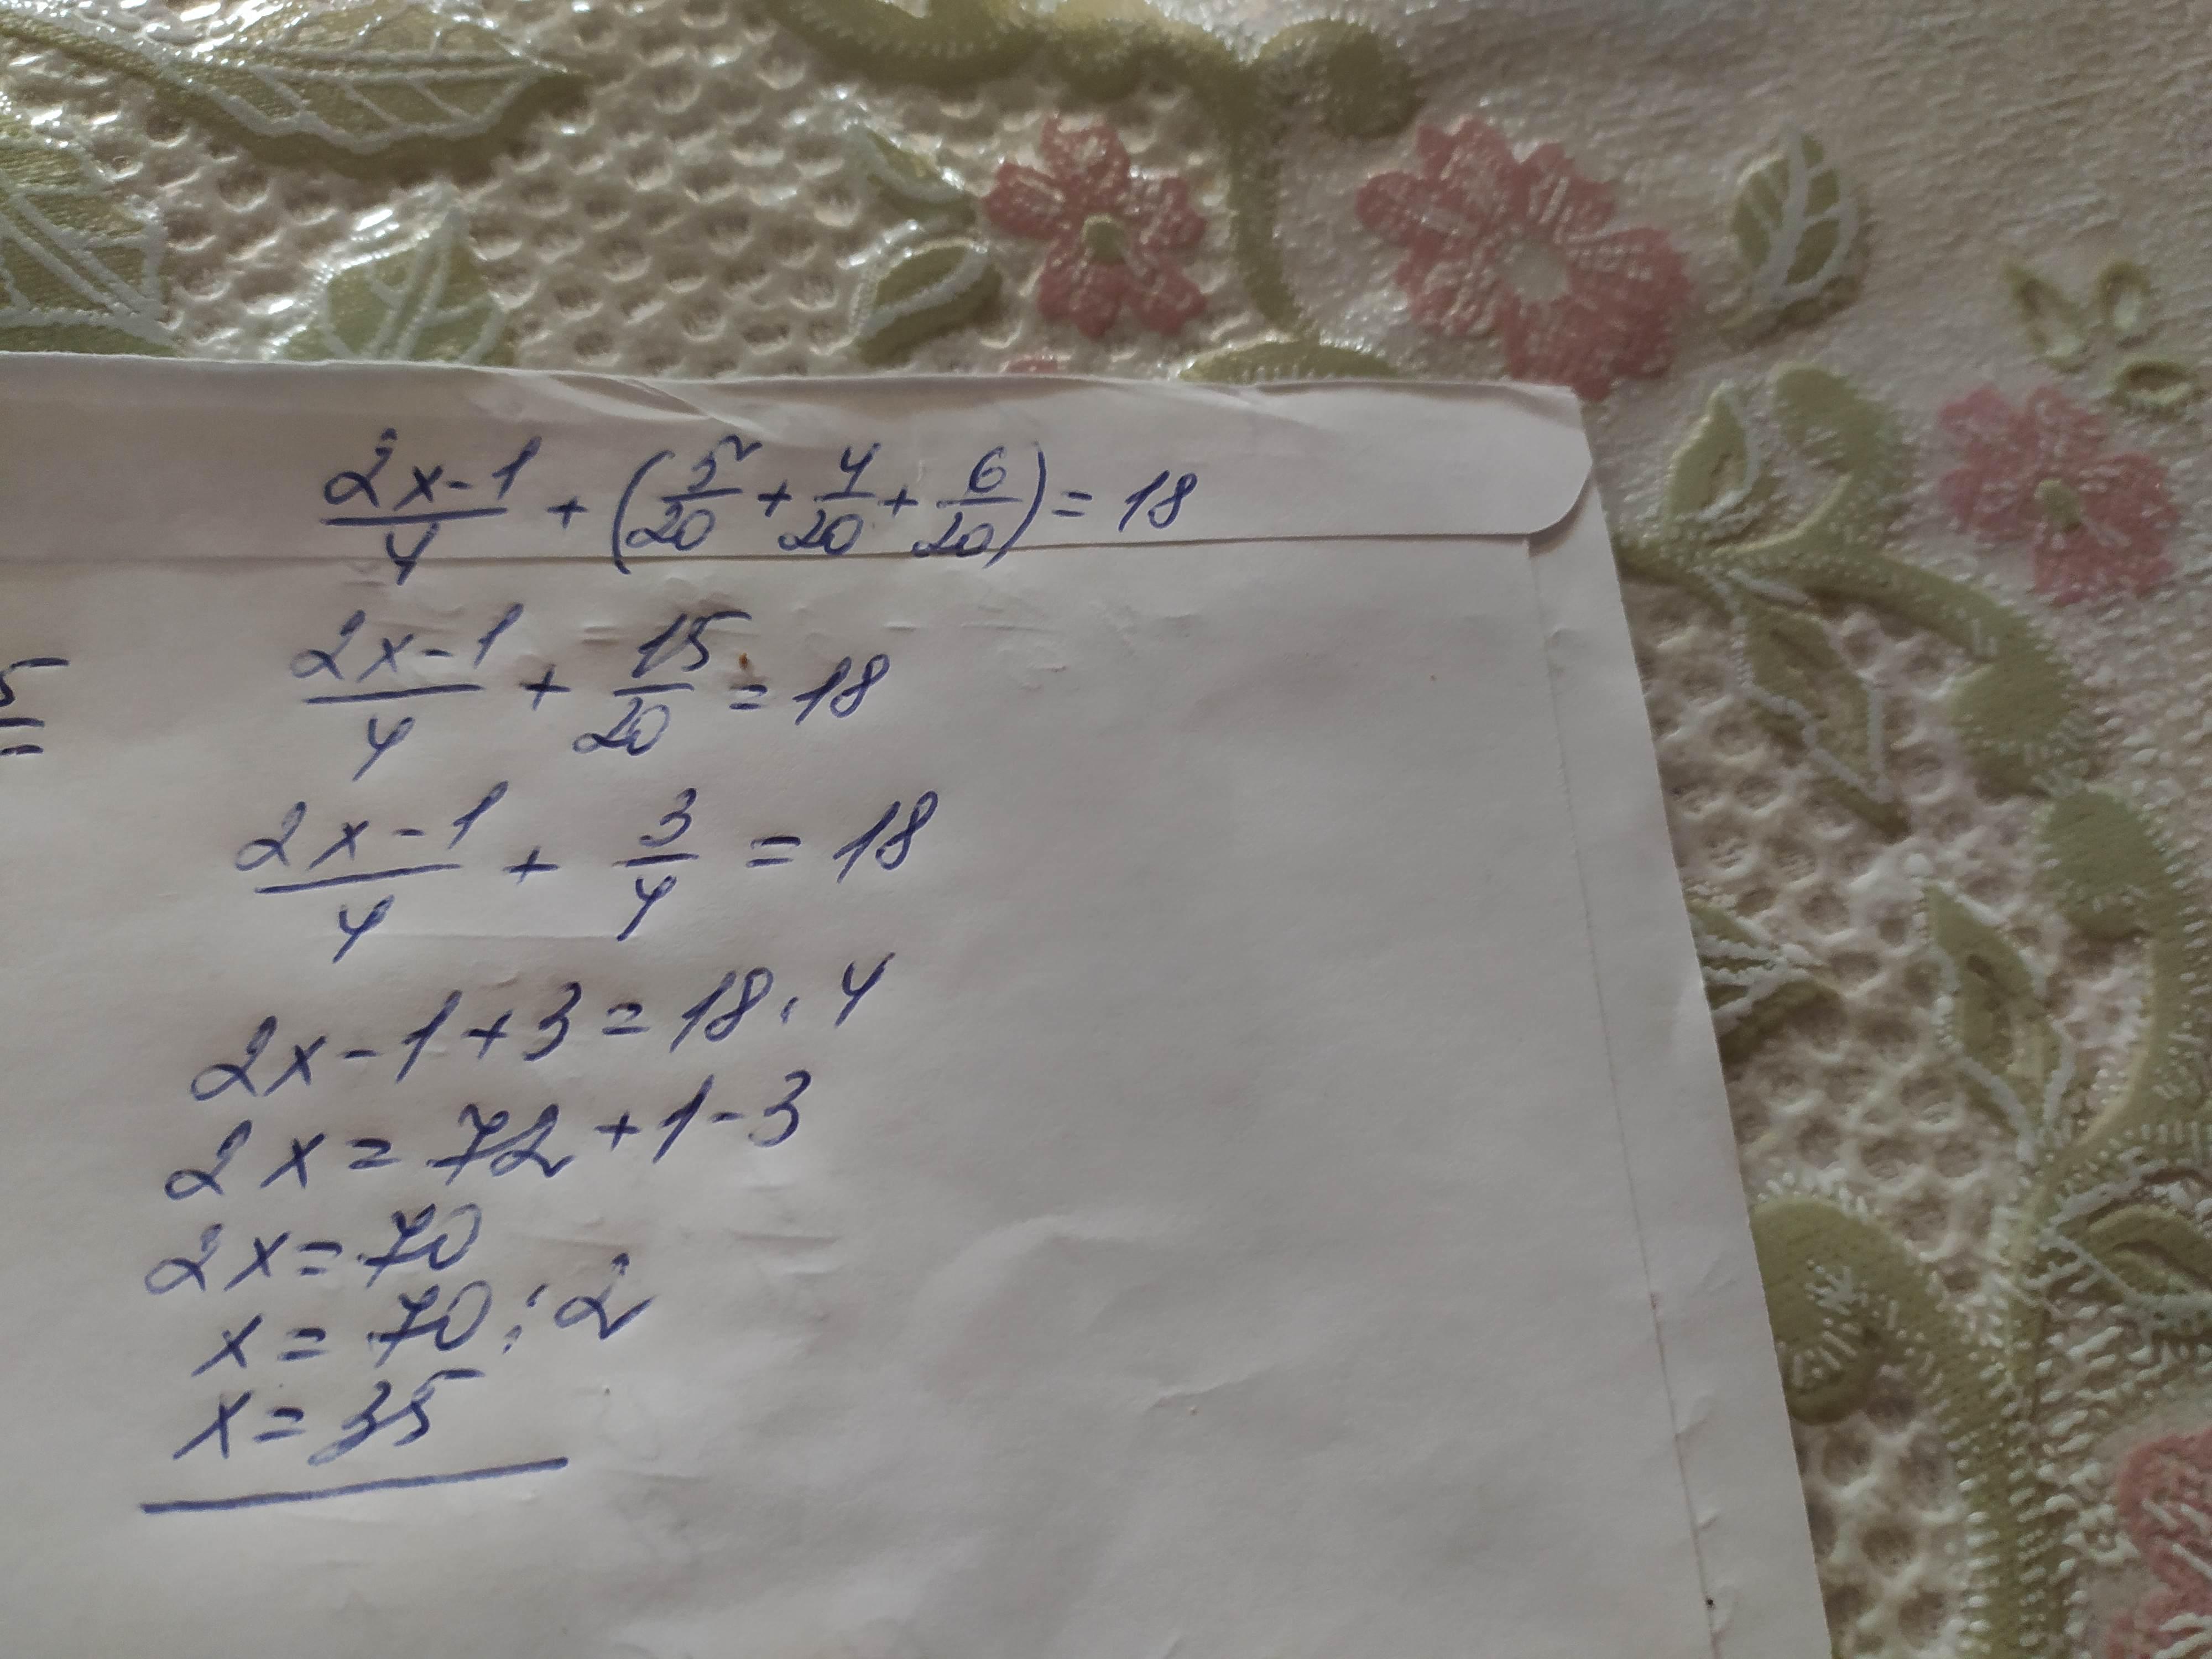 (2x-1)/4 + (5/20 + 4/20 + 6/20) = 18
(2x-1)/4 + 15/20 = 18
5=
(2x-1)/4 + 3/4 = 18
2x-1+3=18·4
2x=72+1-3
2x=70
x=70:2
x=35